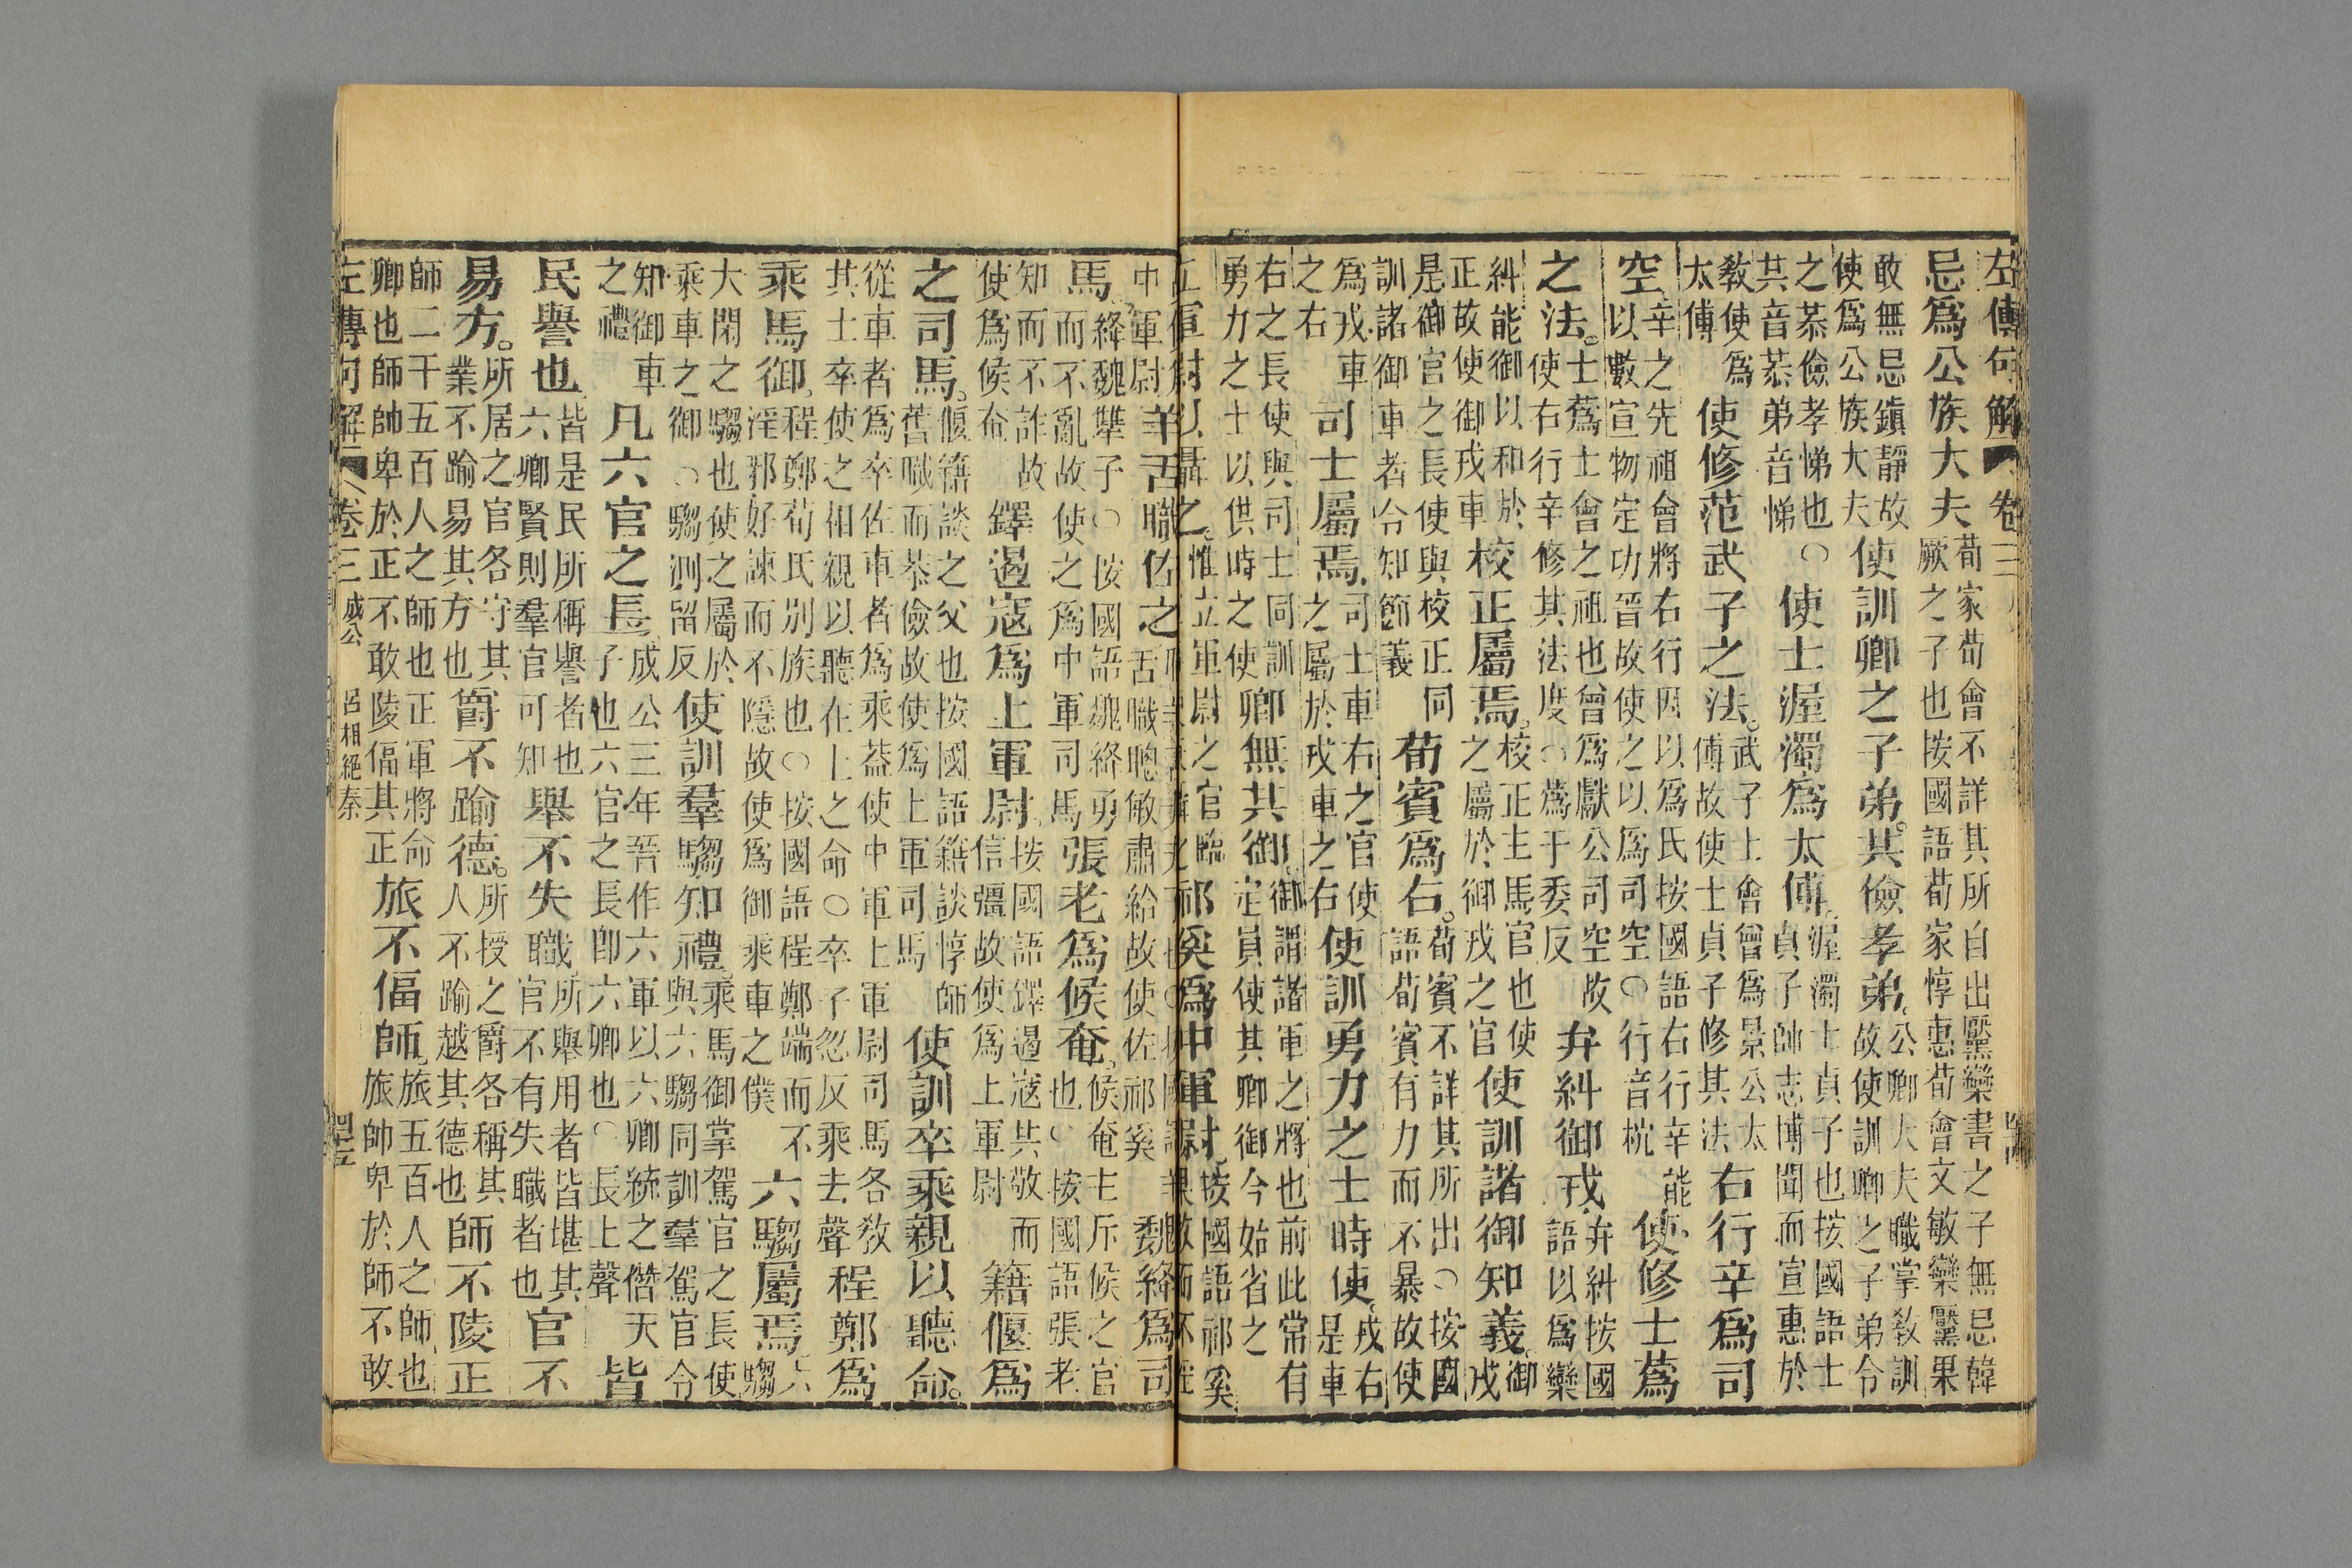 左傳句解 卷三
忌爲公族大夫荀家荀會不詳其所自出黶欒書之子無忌韓厥之子也按國語荀家惇惠荀會文敏欒黶果
敢無忌鎮靜故使爲公族大夫使訓卿之子弟。共儉孝弟。公卿大夫職掌敎訓故使訓卿之子弟令
之恭儉孝悌也○共音恭弟音悌使士渥濁爲太傅。渥濁士貞子也按國語士貞子帥志博聞而宣惠於
敎使爲太傅使修范武子之法。武子士會曾爲景公太傅故使士貞子修其法右行辛爲司
空。辛之先祖會將右行因以爲氏按國語右行辛能以數宣物定功晉故使之以爲司空○行音杭使修士蔿
之法。士蔿士會之祖也曾爲獻公司空故使右行辛修其法度○蔿于委反弁糾御戎。弁糾按國語以爲欒
糾能御以和於正故使御戎車校正屬焉。校正主馬官也使之屬於御戎之官使訓諸御知義。御戎
是御官之長使與校正同訓諸御車者令知節義荀賓爲右。荀賓不詳其所出○按國語荀賓有力而不暴故使
爲戎車之右司士屬焉。司士車右之官使之屬於戎車之右使訓勇力之士時使。戎右是車
右之長使與司士同訓勇力之士以供時之使卿無共御。御謂諸軍之將也前此常有定員使其卿御今始省之
立軍尉以攝之。惟立軍尉之官臨祁奚爲中軍尉。按國語祁奚果敢而不淫
中軍尉羊舌職佐之舌職聰敏肅給故使佐祁奚魏絳爲司
馬。絳魏犨子○按國語魏絳勇而不亂故使之爲中軍司馬張老爲候奄。候奄主斥候之官也○按國語張老
知而不詐故使爲候奄鐸遏寇爲上軍尉。按國語鐸遏寇共敬而信彊故使爲上軍尉籍偃爲
之司馬。偃籍談之父也按國語籍談惇師舊職而恭儉故使爲上軍司馬使訓卒乘親以聽命。
從車者爲卒佐車者爲乘葢使中軍上軍尉司馬各敎其士卒使之相親以聽在上之命○卒子忽反乘去聲程鄭爲
乘馬御。程鄭荀氏別族也○按國語程鄭端而不淫邪好諫而不隱故使爲御乘車之僕六騶屬焉。六騶
大閑之騶也使之屬於乘車之御○騶測留反使訓羣騶知禮。乘馬御掌駕官之長使與六騶同訓羣駕官令
知御車之禮凡六官之長。成公三年晉作六軍以六卿統之僭天子也六官之長卽六卿也○長上聲皆
民譽也。皆是民所稱譽者也六卿賢則羣官可知舉不失職。所舉用者皆堪其官不有失職者也官不
易方。所居之官各守其業不踰易其方也爵不踰德。所授之爵各稱其人不踰越其德也師不陵正
師二千五百人之師也正軍將命卿也師帥卑於正不敢陵偪其正旅不偪師。旅五百人之師也旅帥卑於師不敢
左傳句解 卷三 成公 呂相絕秦